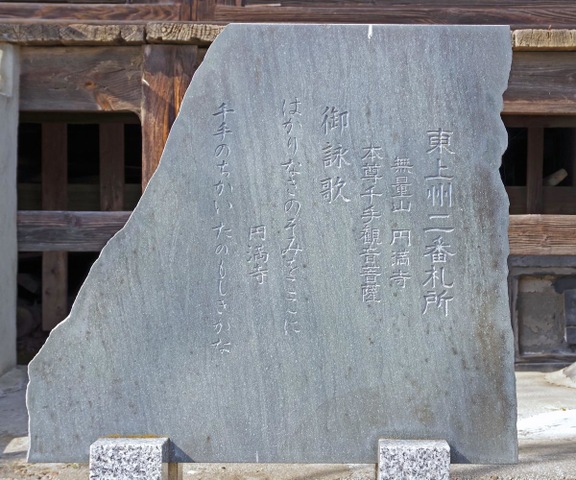 東上州二番札所
無量山 円満寺
本尊千手観音菩薩
御詠歌
はかりなきのぞみをここに
円満寺
千手のちかいたのもしきかな